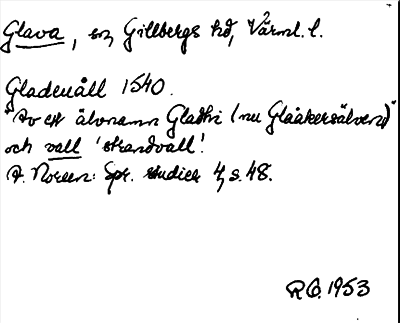 Glava, sn, Gillbergs hd, Värml. l.
Gladeuåll 1540.
"Av ett älvnamn Gladhi (nu Glaåkersälven)"
och vall 'strandvall'.
A. Noreen: Spr. studier 4, s. 48.
RO. 1953